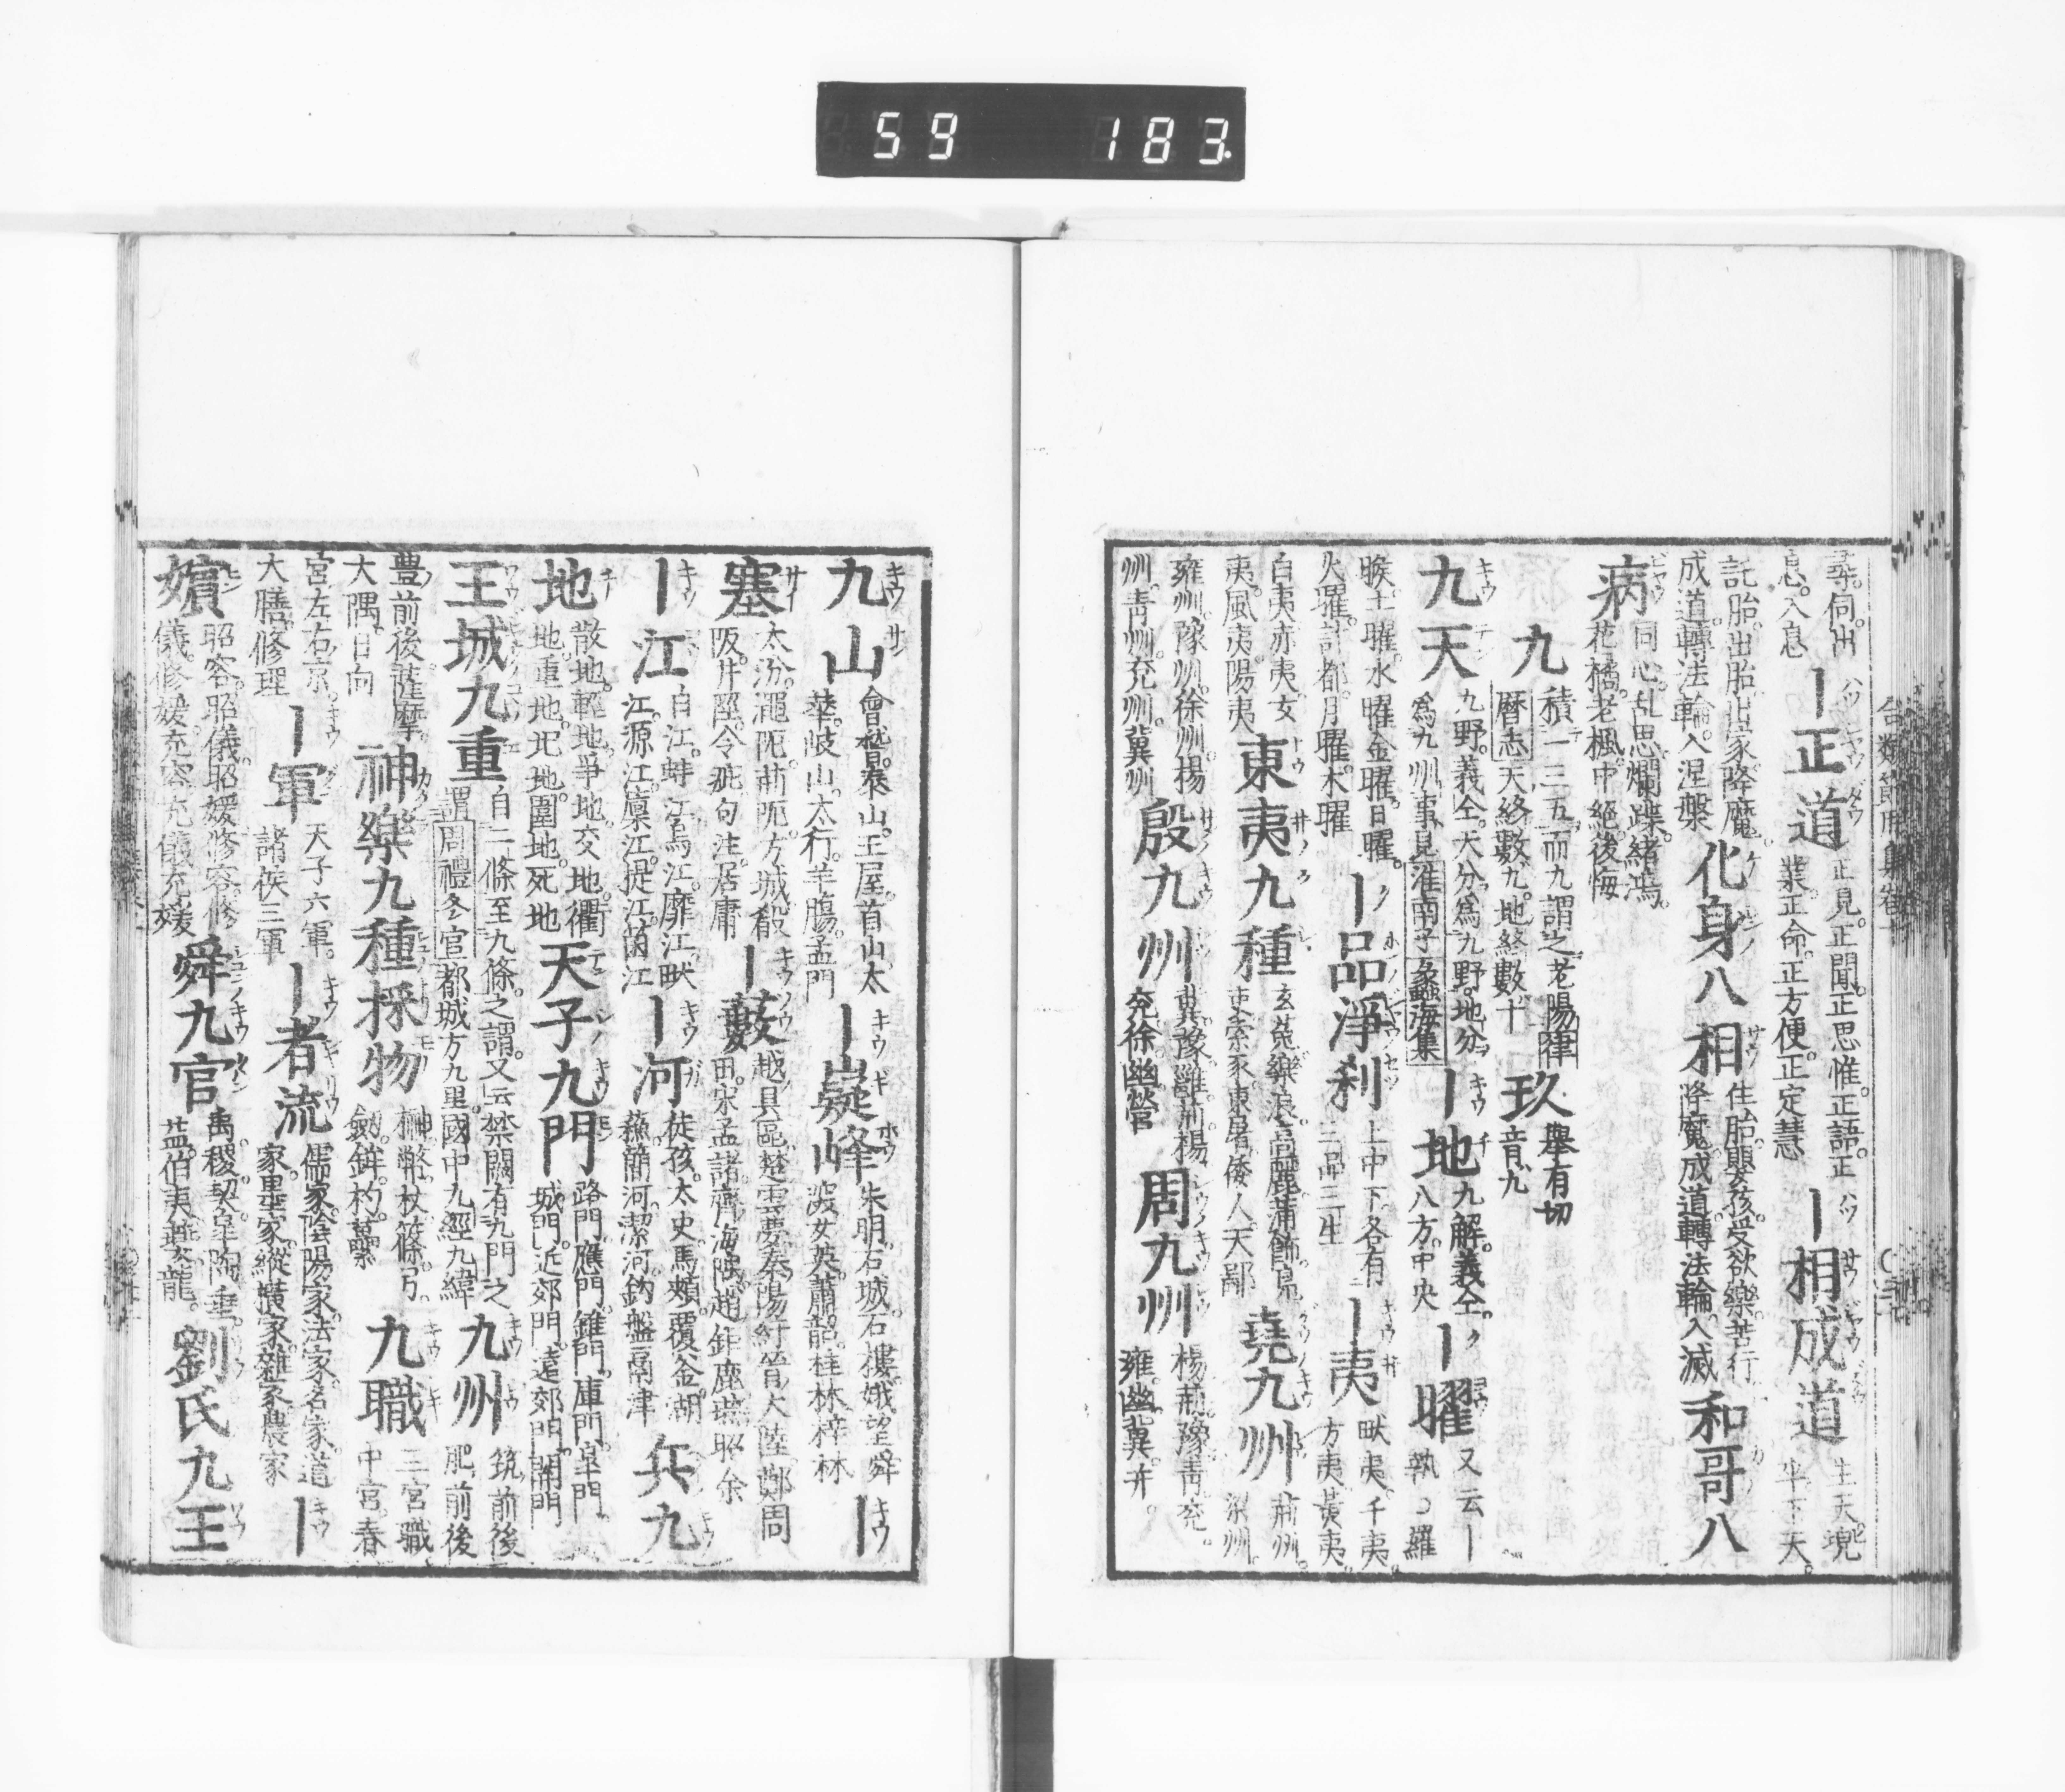 59 183
尋。伺。出息。入息
｜正道 正見。正聞。正思惟。正語。正業。正命。正方便。正定慧
｜相成道 生天。兜率下天。
託胎。出胎。出家。降魔。成道。轉法輪。入涅槃
化身八相 住胎。嬰孩。受欲。樂苦行。降魔。成道。轉法輪。入滅
和哥八
病 同心。乱思。爛蹀。緒鴻。花橘。老楓。中絕。後悔
九 積一三五而九謂之老陽律曆志天終數九。地終數十
玖 舉有切音九
九天 九野。義仝。天分為九野。地分為九州。事見淮南子蠡海集
｜地 九解。義仝。八方。中央
｜曜 又云｜執 羅
睺。土曜。水曜。金曜。日曜。火曜。計都。月曜。木曜
｜品淨刹 上中下各有三品三生
｜夷 畎夷。千夷。方夷。黃夷。
白夷。赤夷。女夷。風夷。陽夷
東夷九種 玄菟。樂浪。高麗。蒲飾。鳧臾。索家。東屠。倭人。天鄙
堯九州 荊州。梁州。
雍州。豫州。徐州。揚州。青州。兗州。冀州
殷九州 冀。豫。雝。荊。楊。兗。徐。幽。營
周九州 楊。荊。豫。青。兗。雍。幽。冀。并。
九山 會稽。泰山。王屋。首山。太華。岐山。太行。羊膓。孟門
｜嶷峰 朱明。石城。石樓。娥。望舜。波。女英。蕭韶。桂林。梓林
｜
塞 太汾。澠阨。荊阨。方城。殽阪。井陘。令疵。句注。居庸
｜藪 越具區。楚雲夢。秦陽紆。晉大陸。鄭圃田。宋孟諸。齊海隅。趙鉅鹿。燕昭余
｜江 白江。蚌江。烏江。靡江。畎江。源江。廩江。提江。菌江
｜河 徒孩。太史。馬頰。覆釜。胡蘇。簡河。潔河。鈎盤。鬲津
兵九
地 散地。輕地。爭地。交地。衢地。重地。圯地。圍地。死地
天子九門 路門。應門。雉門。庫門。皐門。城門。近郊門。遠郊門。關門
王城九重 自二條至九條之謂。又云禁闕有九門之置周禮冬官都城方九里。國中九經九緯
九州 筑前後肥前後
豊前後。薩摩。大隅。日向
神樂九種採物 榊。幣。杖。篠。弓。劔。鉾。杓。葛
九職 三宮職。中宮。春
宮。左右京。大膳。修理
｜軍 天子六軍。諸侯三軍
｜者流 儒家。陰陽家。法家。名家。道家。墨家。縱橫家。雜家。農家
｜
嬪 昭容。昭儀。昭媛。修容。修儀。修媛。充容。充儀。充媛
舜九官 禹。稷。契。皐陶。垂。益。伯夷。夔。龍。
劉氏九王